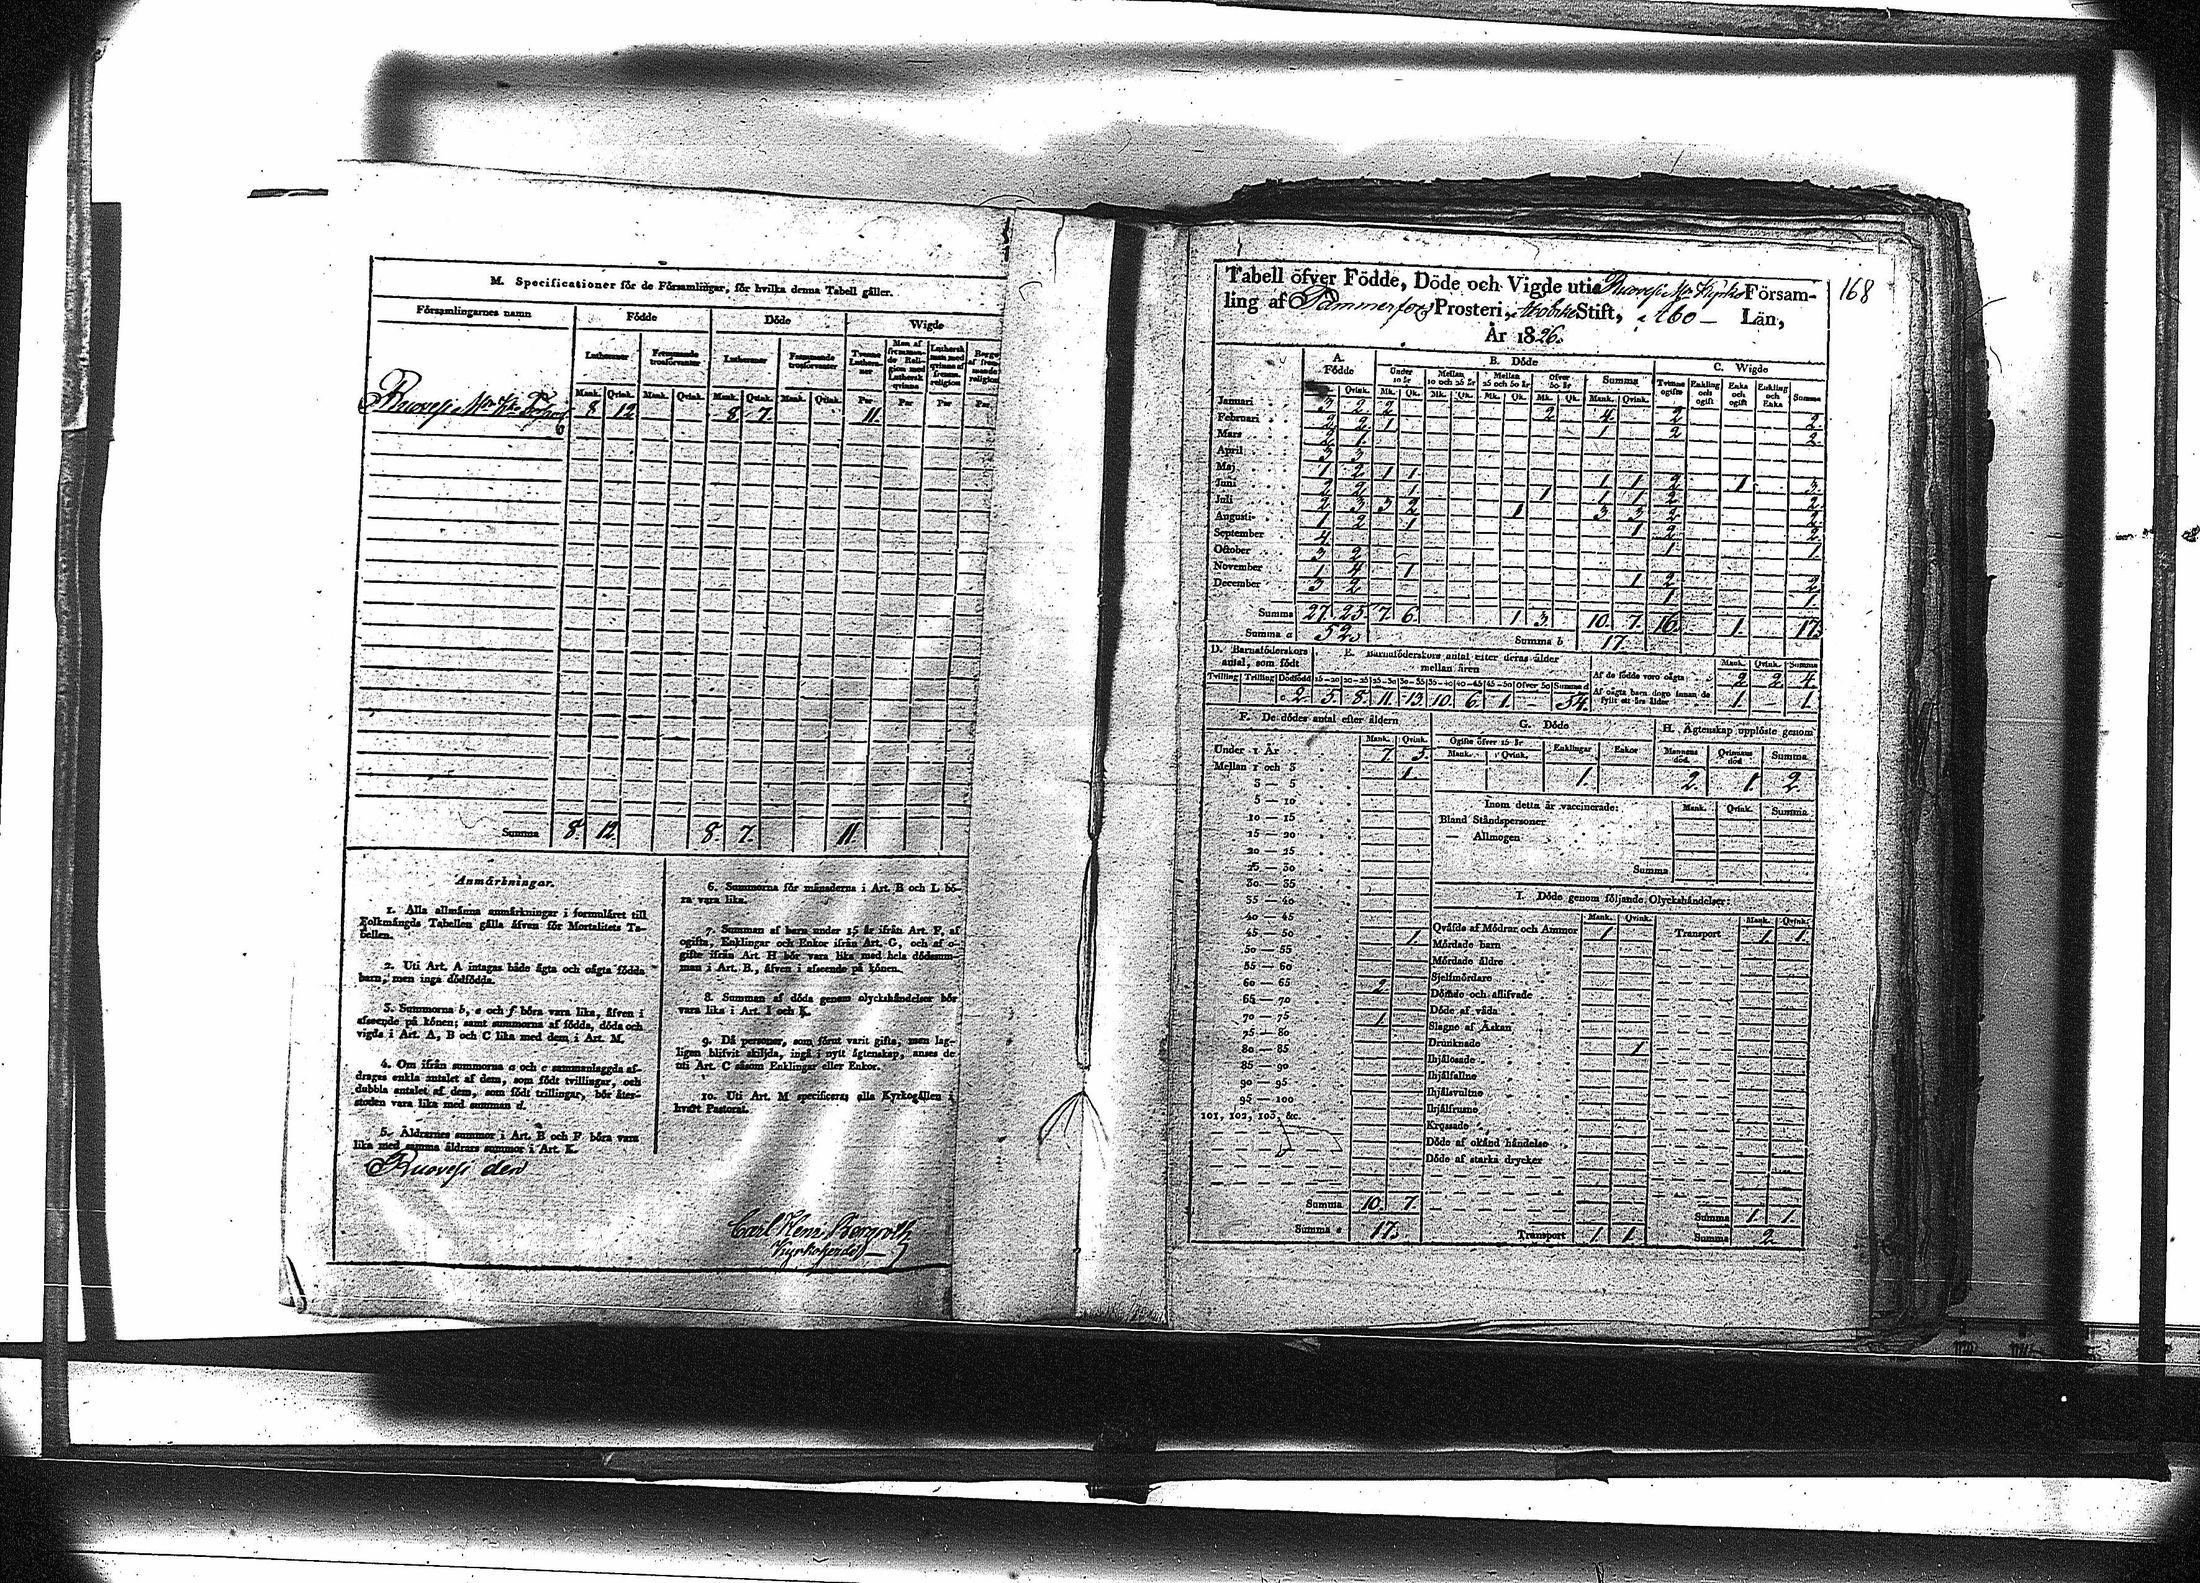 M. Specificationer för de Församlingar, för hvilka denna Tabell gäller.
Församlingarnes namn Födde Döde Wigde
Lutheraner Fremmande trosförvanter Lutheraner Fremmande trosförvanter Tvenne Lutheraner Man af fremmande Religion med Luthersk qvinna Luthersk man med qvinna af fremm. religion Begge af fremmande religion
Mank. Qvink. Mank. Qvink. Mank. Qvink. Mank. Qvink. Par Par Par Par
Ruovesi 8 12 8 7 11.
Summa 8 12 8. 7. 11.
Anmärkningar.
1. Alla allmänna anmärkningar i formuläret till
Folkmängds Tabellen gälla äfven för Mortalitets Ta-
bellen.
2. Uti Art. A intagas både ägta och oägta födda
barn, men inga dödfödda.
3. Summorna b, e och f böra vara lika, äfven i
afseende på könen; samt summorna af födda, döda och
vigda i Art. A, B och C lika med dem i Art. M.
4. Om ifrån summorna a och c sammanlaggda af-
drages enkla antalet af dem, som födt tvillingar, och
dubbla antalet af dem, som födt trillingar, bör åter-
stoden vara lika med summan d.
5. Åldrarnes summor i Art. B och F böra vara
lika med samma åldrars summor i Art. K.
6. Summorna för månaderna i Art. B och L bö-
ra vara lika.
7. Summan af barn under 15 år ifrån Art. F, af
ogifta, Enklingar och Enkor ifrån Art. G, och af o-
gifte ifrån Art. H bör vara lika med hela dödssum-
man i Art. B., äfven i afseende på könen.
8. Summan af döda genom olyckshändelser bör
vara lika i Art. I och K.
9. Då personer, som förut varit gifta, men lag-
ligen blifvit skiljda, ingå i nytt ägtenskap, anses de
uti Art. C såsom Enklingar eller Enkor.
10. Uti Art. M specificeras alla Kyrkogällen i
hvart Pastorat.
Ruovesi den
Carl Henr. Bergroth
Kyrkoherde
168
Tabell öfver Födde, Döde och Vigde utia Ruovesi Mr Kyrko Försam-
ling af Tammerfors Prosteri, Stift, Åbo Län,
År 1826.
A. Födde B. Döde C. Wigde
Under 10 år Mellan 10 och 25 år Mellan 25 och 50 år Öfver 50 år Summa Tvänne ogifte Enkling och ogift Enka och ogift Enkling och Enka Summa
Qvink. Mk. Qk. Mk. Qk. Mk. Qk. Mk. Qk. Mank. Qvink.
Januari 3 2 2 2 4 2 2
Februari 2 2 1 1 2 2
Mars 2 1
April 3 3
Maj 1 2 1 1 1 1 2 1 3
Juni 2 2 1 1 1 1 2 2
Juli 2 3 3 2 1 3 3 2 2
Augusti 1 2 1 1 2 2
September 4 1 1
October 3 2
November 1 4 1 1 2 2
December 3 2 1 1
Summa 27. 25. 7. 6. 1 3 10. 7. 16. 1. 17.
Summa a 52. Summa b 17.
D. Barnaföderskors antal, som födt E. Barnaföderskors antal efter deras ålder mellan åren
Tvilling Trilling Dödfödd 15—20 20—25 25—30 30—35 35—40 40—45 45—50 Öfver 50 Summa d
c 2. 5. 8. 11. 13. 10. 6. 1. — 54.
Mank. Qvink. Summa
Af de födde voro oägta 2 2. 4.
Af oägta barn dogo innan de fyllt ett års ålder 1. — 1.
F. De dödes antal efter åldern
Mank. Qvink.
Under 1 År 7 5.
Mellan 1 och 3 1.
3 — 5
5 — 10
10 — 15
15 — 20
20 — 25
25 — 30
30 — 35
35 — 40
40 — 45
45 — 50 1.
50 — 55
55 — 60
60 — 65 2.
65 — 70
70 — 75 1.
75 — 80
80 — 85
85 — 90
90 — 95
95 — 100
101, 102, 103, &c.
Summa 10. 7.
Summa e 17.
G. Döde
Ogifte öfver 15 år Enklingar Enkor
Mank. Qvink.
1.
H. Ägtenskap upplöste genom
Mannens död Qvinnans död Summa
2. 1. 2.
Inom detta år vaccinerade: Mank. Qvink. Summa
Bland Ståndspersoner
— Allmogen
Summa
I. Döde genom följande Olyckshändelser:
Mank. Qvink. Mank. Qvink.
Qväfde af Mödrar och Ammor 1 Transport 1 1.
Mördade barn
Mördade äldre
Sjelfmördare
Dömde och aflifvade
Döde af våda
Slagne af Åskan
Drunknade 1
Ihjälosade
Ihjälfallne
Ihjälsvultne
Ihjälfrusne
Krossade
Döde af okänd händelse
Döde af starka drycker
Transport 1. 1.
Summa 1 1.
Summa 2